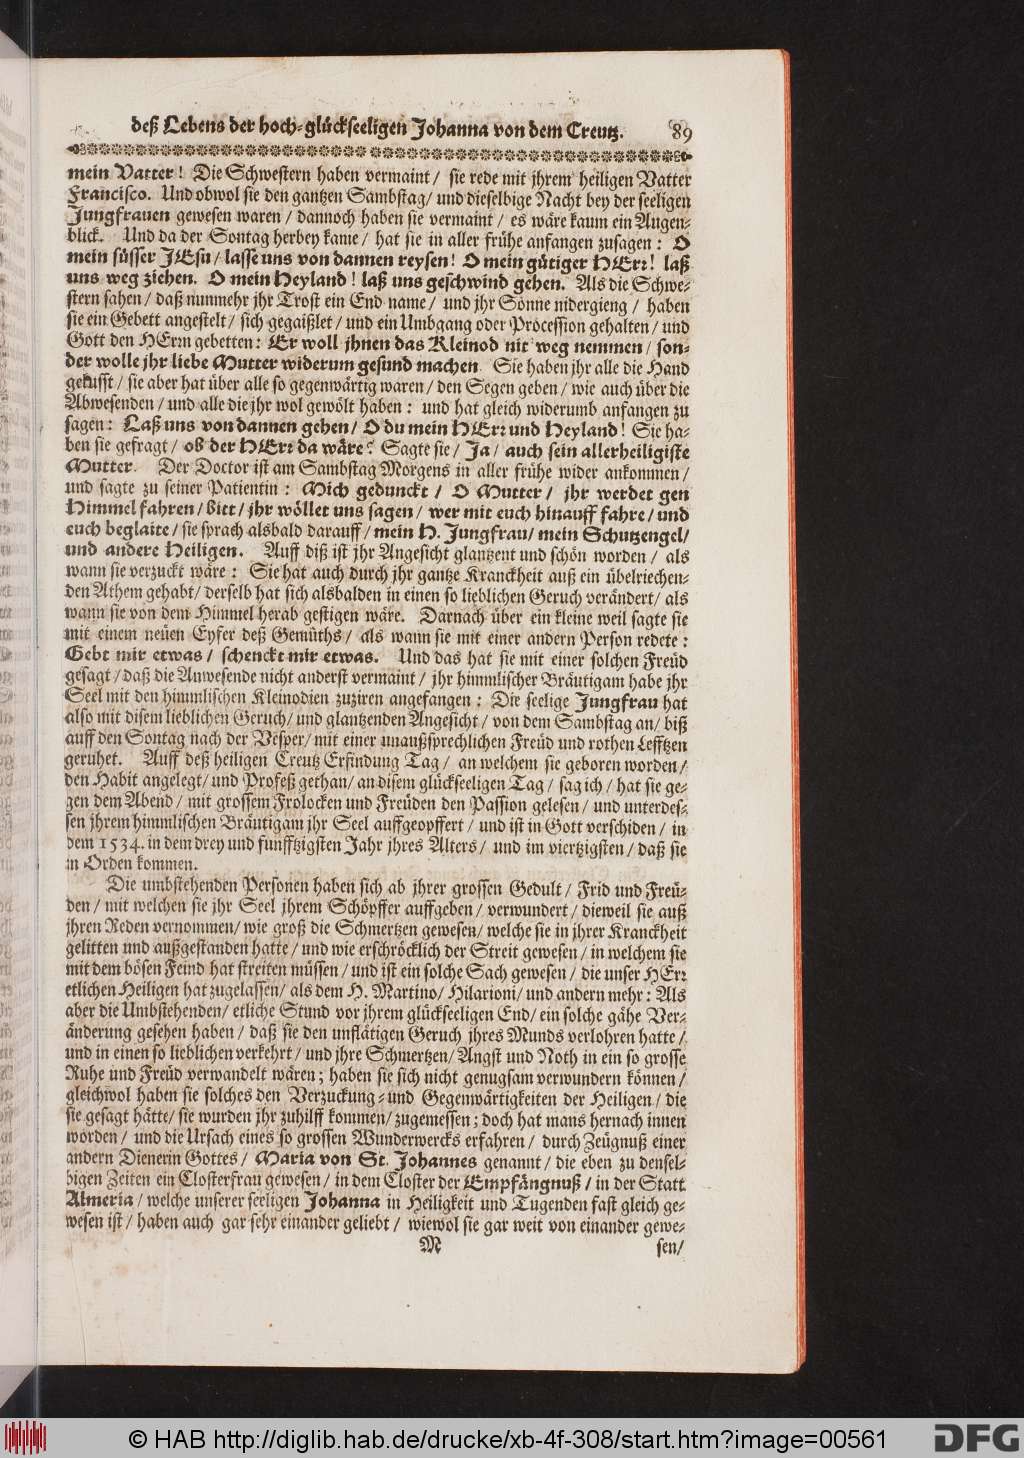 deß Lebens der hoch-glückseeligen Johanna von dem Creutz. 89
mein Vatter! Die Schwestern haben vermaint/ sie rede mit jhrem heiligen Vatter
Francisco. Und obwol sie den gantzen Sambstag/ und dieselbige Nacht bey der seeligen
Jungfrauen gewesen waren/ dannoch haben sie vermaint/ es wäre kaum ein Augen-
blick. Und da der Sontag herbey kame/ hat sie in aller frühe anfangen zusagen: O
mein süsser JEsu/ lasse uns von dannen reysen! O mein gütiger HErr! laß
uns weg ziehen. O mein Heyland! laß uns geschwind gehen. Als die Schwe-
stern sahen/ daß nunmehr jhr Trost ein End name/ und jhr Sonne nidergieng/ haben
sie ein Gebett angestelt/ sich gegaißlet/ und ein Umbgang oder Procession gehalten/ und
Gott den HErrn gebetten: Er woll jhnen das Kleinod nit weg nemmen/ son-
der wolle jhr liebe Mutter widerum gesund machen. Sie haben jhr alle die Hand
gekusst/ sie aber hat über alle so gegenwärtig waren/ den Segen geben/ wie auch über die
Abwesenden/ und alle die jhr wol gewölt haben: und hat gleich widerumb anfangen zu
sagen: Laß uns von dannen gehen/ O du mein HErr und Heyland! Sie ha-
ben sie gefragt/ ob der HErr da wäre? Sagte sie/ Ja/ auch sein allerheiligiste
Mutter. Der Doctor ist am Sambstag Morgens in aller frühe wider ankommen/
und sagte zu seiner Patientin: Mich gedunckt/ O Mutter/ jhr werdet gen
Himmel fahren/ bitt/ jhr wöllet uns sagen/ wer mit euch hinauff fahre/ und
euch beglaite/ sie sprach alsbald darauff/ mein H. Jungfrau/ mein Schutzengel/
und andere Heiligen. Auff diß ist jhr Angesicht glantzent und schön worden/ als
wann sie verzuckt wäre: Sie hat auch durch jhr gantze Kranckheit auß ein übelriechen-
den Athem gehabt/ derselb hat sich alsbalden in einen so lieblichen Geruch verändert/ als
wann sie von dem Himmel herab gestigen wäre. Darnach über ein kleine weil sagte sie
mit einem neüen Eyfer deß Gemüths/ als wann sie mit einer andern Person redete:
Gebt mir etwas/ schenckt mir etwas. Und das hat sie mit einer solchen Freüd
gesagt/ daß die Anwesende nicht anderst vermaint/ jhr himmlischer Bräutigam habe jhr
Seel mit den himmlischen Kleinodien zuziren angefangen: Die seelige Jungfrau hat
also mit disem lieblichen Geruch/ und glantzenden Angesicht/ von dem Sambstag an/ biß
auff den Sontag nach der Vesper/ mit einer unaußsprechlichen Freüd und rothen Lefftzen
geruhet. Auff deß heiligen Creutz Erfindung Tag/ an welchem sie geboren worden/
den Habit angelegt/ und Profeß gethan/ an disem glückseeligen Tag/ sag ich/ hat sie ge-
gen dem Abend/ mit grossem Frolocken und Freüden den Passion gelesen/ und unterdes-
sen jhrem himmlischen Bräutigam jhr Seel auffgeopffert/ und ist in Gott verschiden/ in
dem 1534. in dem drey und funfftzigsten Jahr jhres Alters/ und im viertzigsten/ daß sie
in Orden kommen.
Die umbstehenden Personen haben sich ab jhrer grossen Gedult/ Frid und Freü-
den/ mit welchen sie jhr Seel jhrem Schöpffer auffgeben/ verwundert/ dieweil sie auß
jhren Reden vernommen/ wie groß die Schmertzen gewesen/ welche sie in jhrer Kranckheit
gelitten und außgestanden hatte/ und wie erschröcklich der Streit gewesen/ in welchem sie
mit dem bösen Feind hat streiten müssen/ und ist ein solche Sach gewesen/ die unser HErr
etlichen Heiligen hat zugelassen/ als dem H. Martino/ Hilarioni/ und andern mehr: Als
aber die Umbstehenden/ etliche Stund vor jhrem glückseeligen End/ ein solche gähe Ver-
änderung gesehen haben/ daß sie den unflätigen Geruch jhres Munds verlohren hatte/
und in einen so lieblichen verkehrt/ und jhre Schmertzen/ Angst und Noth in ein so grosse
Ruhe und Freüd verwandelt wären; haben sie sich nicht genugsam verwundern können/
gleichwol haben sie solches den Verzuckung- und Gegenwärtigkeiten der Heiligen/ die
sie gesagt hätte/ sie wurden jhr zuhilff kommen/ zugemessen; doch hat mans hernach innen
worden/ und die Ursach eines so grossen Wunderwercks erfahren/ durch Zeügnuß einer
andern Dienerin Gottes/ Maria von St. Johannes genannt/ die eben zu densel-
bigen Zeiten ein Closterfrau gewesen/ in dem Closter der Empfängnuß/ in der Statt
Almeria/ welche unserer seeligen Johanna in Heiligkeit und Tugenden fast gleich ge-
wesen ist/ haben auch gar sehr einander geliebt/ wiewol sie gar weit von einander gewe-
M sen/
© HAB http://diglib.hab.de/drucke/xb-4f-308/start.htm?image=00561
DFG